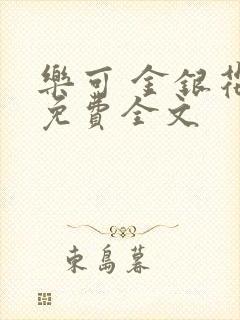 樂可 金銀花
免費全文
東島暮